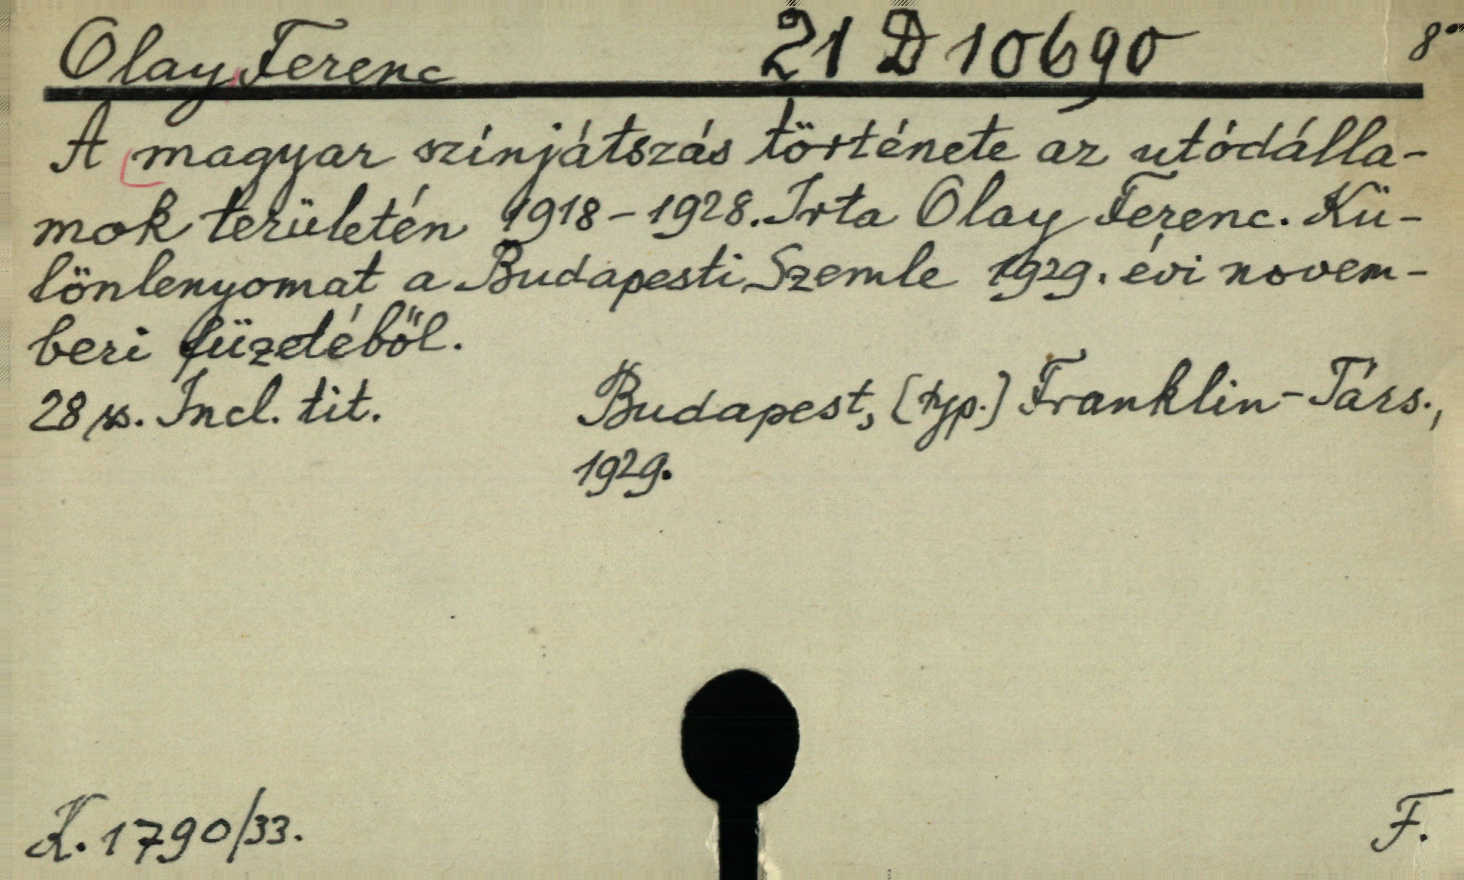 Olay, Ferenc 21 D 10690 8°
A magyar színjátszás története az utódálla-
mok területén 1918-1928. Irta Olay Ferenc. Kü-
lönlenyomat a Budapesti Szemle 1929. évi novem-
beri füzetéből.
28 ss. Incl. tit. Budapest, [typ.] Franklin-Társ.,
1929.
K. 1790/33. F.